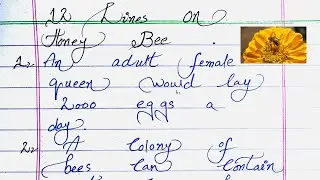 12 Lines on
Honey Bee.
1:- An adult female
queen would lay
2000 eggs a
day.
2:- A Colony of
bees Can Contain